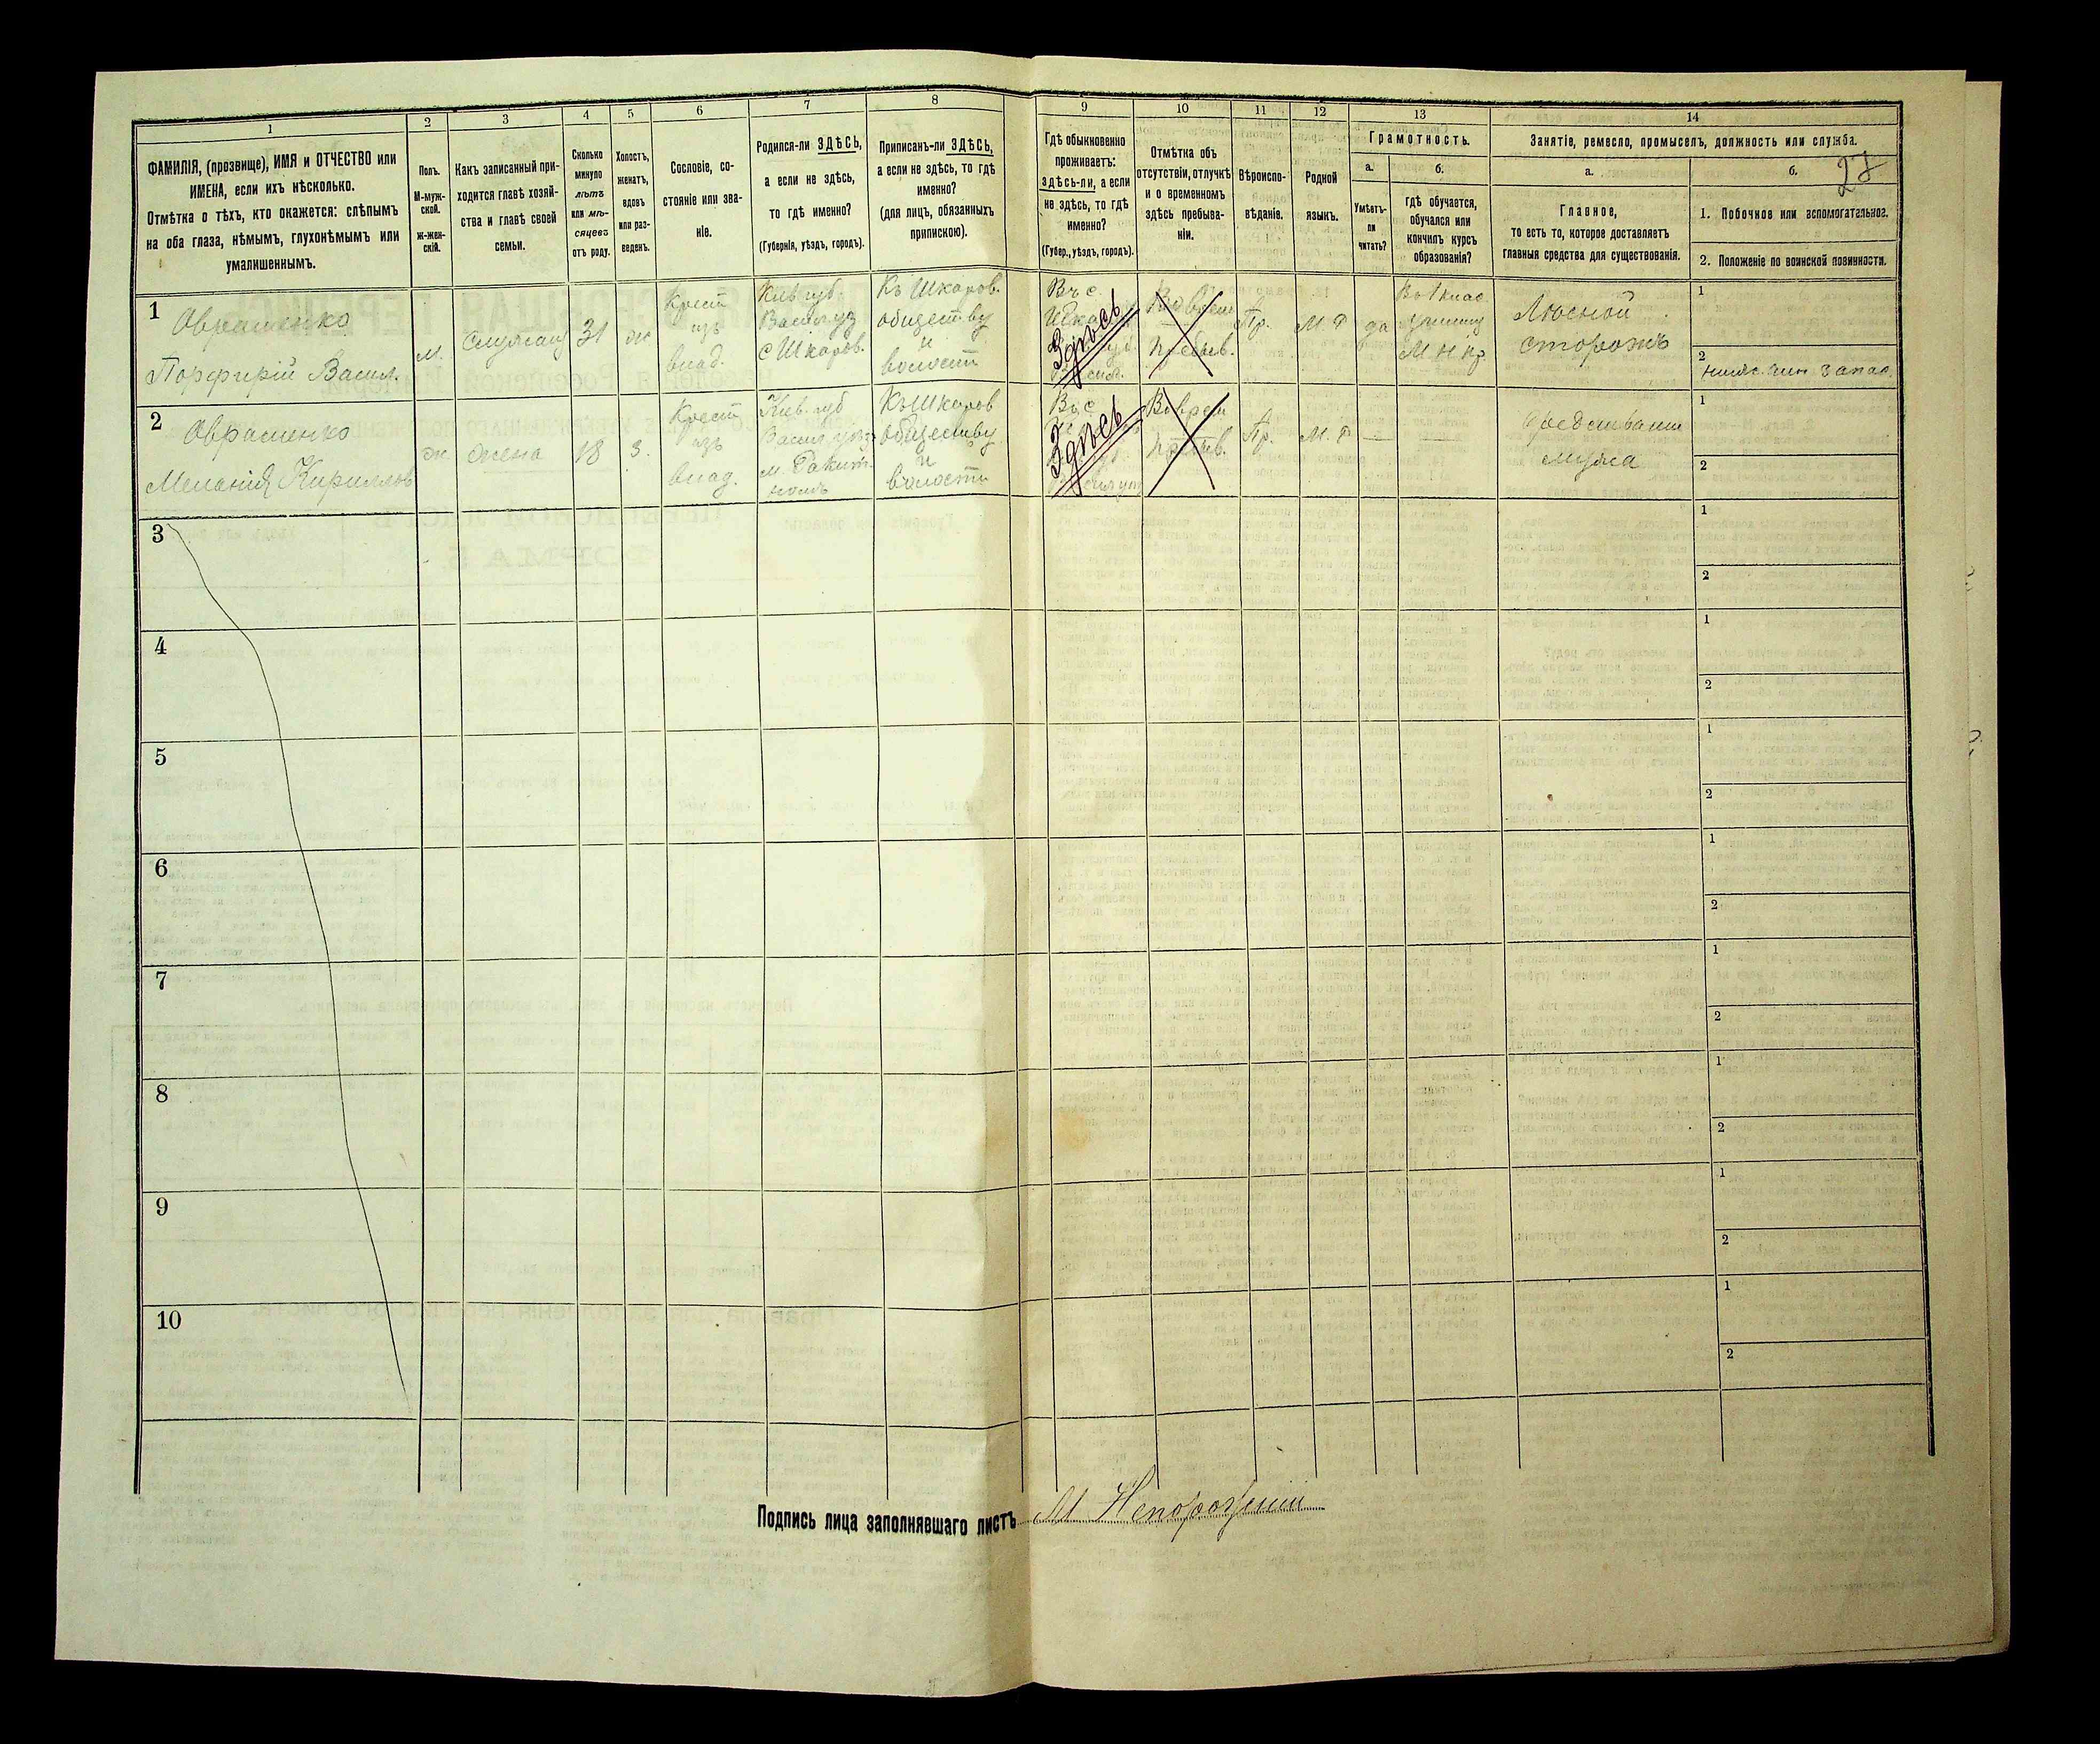 27
1
2
3
4
5
6
7
8
9
10
11
12
13
14
ФАМИЛІЯ, (прозвище), ИМЯ и ОТЧЕСТВО или
ИМЕНА, если ихъ нѣсколько.
Отмѣтка о тѣхъ, кто окажется: слѣпымъ
на оба глаза, нѣмымъ, глухонѣмымъ или
умалишеннымъ.
Полъ.
М-муж-
ской.
Ж-жен-
скій.
Какъ записанный при-
ходится главѣ хозяй-
ства и главѣ своей
семьи.
Сколько
минуло
лѣтъ
или мѣ-
сяцевъ
отъ роду.
Холостъ,
женатъ,
вдовъ
или раз-
веденъ.
Сословіе, со-
стояніе или зва-
ніе.
Родился-ли ЗДѢСЬ,
а если не здѣсь,
то гдѣ именно?
(Губернія, уѣздъ, городъ).
Приписанъ-ли ЗДѢСЬ,
а если не здѣсь, то гдѣ
именно?
(для лицъ, обязанныхъ
припискою).
Гдѣ обыкновенно
проживаетъ:
здѣсь-ли, а если
не здѣсь, то гдѣ
именно?
(Губер., уѣздъ, городъ).
Отмѣтка объ
отсутствіи, отлучкѣ
и о временномъ
здѣсь пребыва-
ніи.
Вѣроиспо-
вѣданіе.
Родной
языкъ.
Грамотность.
а.
Умѣетъ-
ли
читать?
б.
гдѣ обучается,
обучался или
кончилъ курсъ
образованія?
Занятіе, ремесло, промыселъ, должность или служба.
а.
Главное,
то есть то, которое доставляетъ
главныя средства для существованія.
б.
1. Побочное или вспомогательное.
2. Положеніе по воинской повинности.
1
Авраменко
Порфирій Васил.
м.
31
ж
Крест
изъ
влад.
Кіев губ.
Васил. уз
с Шкаров.
Къ Шкаров.
обществу
и
волости
Въ с.
Здѣсь
Во врем
пребыв.
Пр.
М. Р
да
Во 1 клас
М Н Пр
Лѣсной
сторожъ
1
2
нижн. чин запас
2
Авраменко
Меланія Кириллов
ж
жена
18
з.
Крест
изъ
влад.
Кіев. губ
Васил уѣз
м. Ракит
номъ
Къ Шкаров
обществу
и
волости
Въ с
Здѣсь
Во врем
Пр.
М. Р
—
—
средствами
мужа
1
2
3
1
2
4
1
2
5
1
2
6
1
2
7
1
2
8
1
2
9
1
2
10
1
2
Подпись лица заполнявшаго листъ